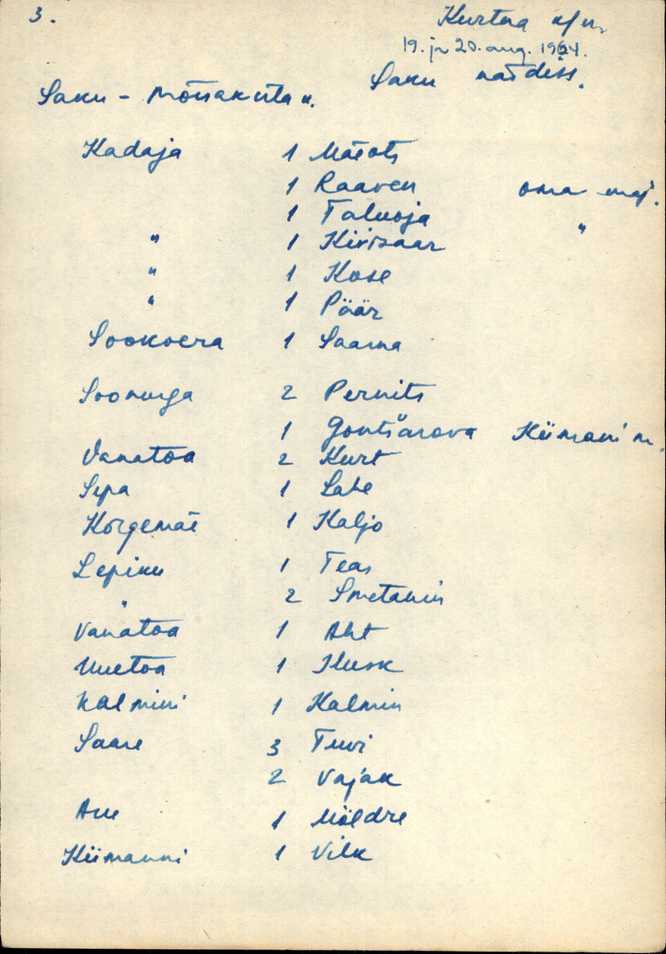 3.
Kurtna k/n.
19. ja 20. aug. 1964.
Saku näidiss.
Saku - Mõisaküla k.
Kadaja 1 Mäeots
1 Raaven oma maj.
1 Taluoja "
" 1 Kivisaar
" 1 Kose
" 1 Pöör
Sookaera 1 Saarna
Soonurga 2 Pernits
1 Gontšarova Kiimani m.
Vanatoa 2 Kurt
Sepa 1 Labe
Kõrgemäe 1 Kaljo
Lepiku 1 Teas
" 2 Smetanin
Vanatoa 1 Aht
Uuetoa 1 Ilusk
Kalmini 1 Kalmin
Saare 3 Tuvi
2 Vajak
Aru 1 Möldre
Kiimanni 1 Vilk